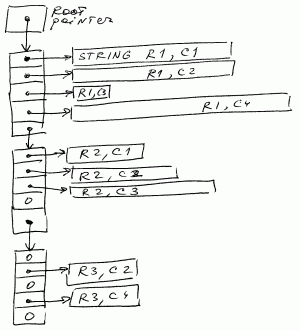 ROOT
pointer
STRING R1, C1
R1, C2
R1, C3
R1, C4
R2, C1
R2, C2
R2, C3
0
0
R3, C2
0
R3, C4
0